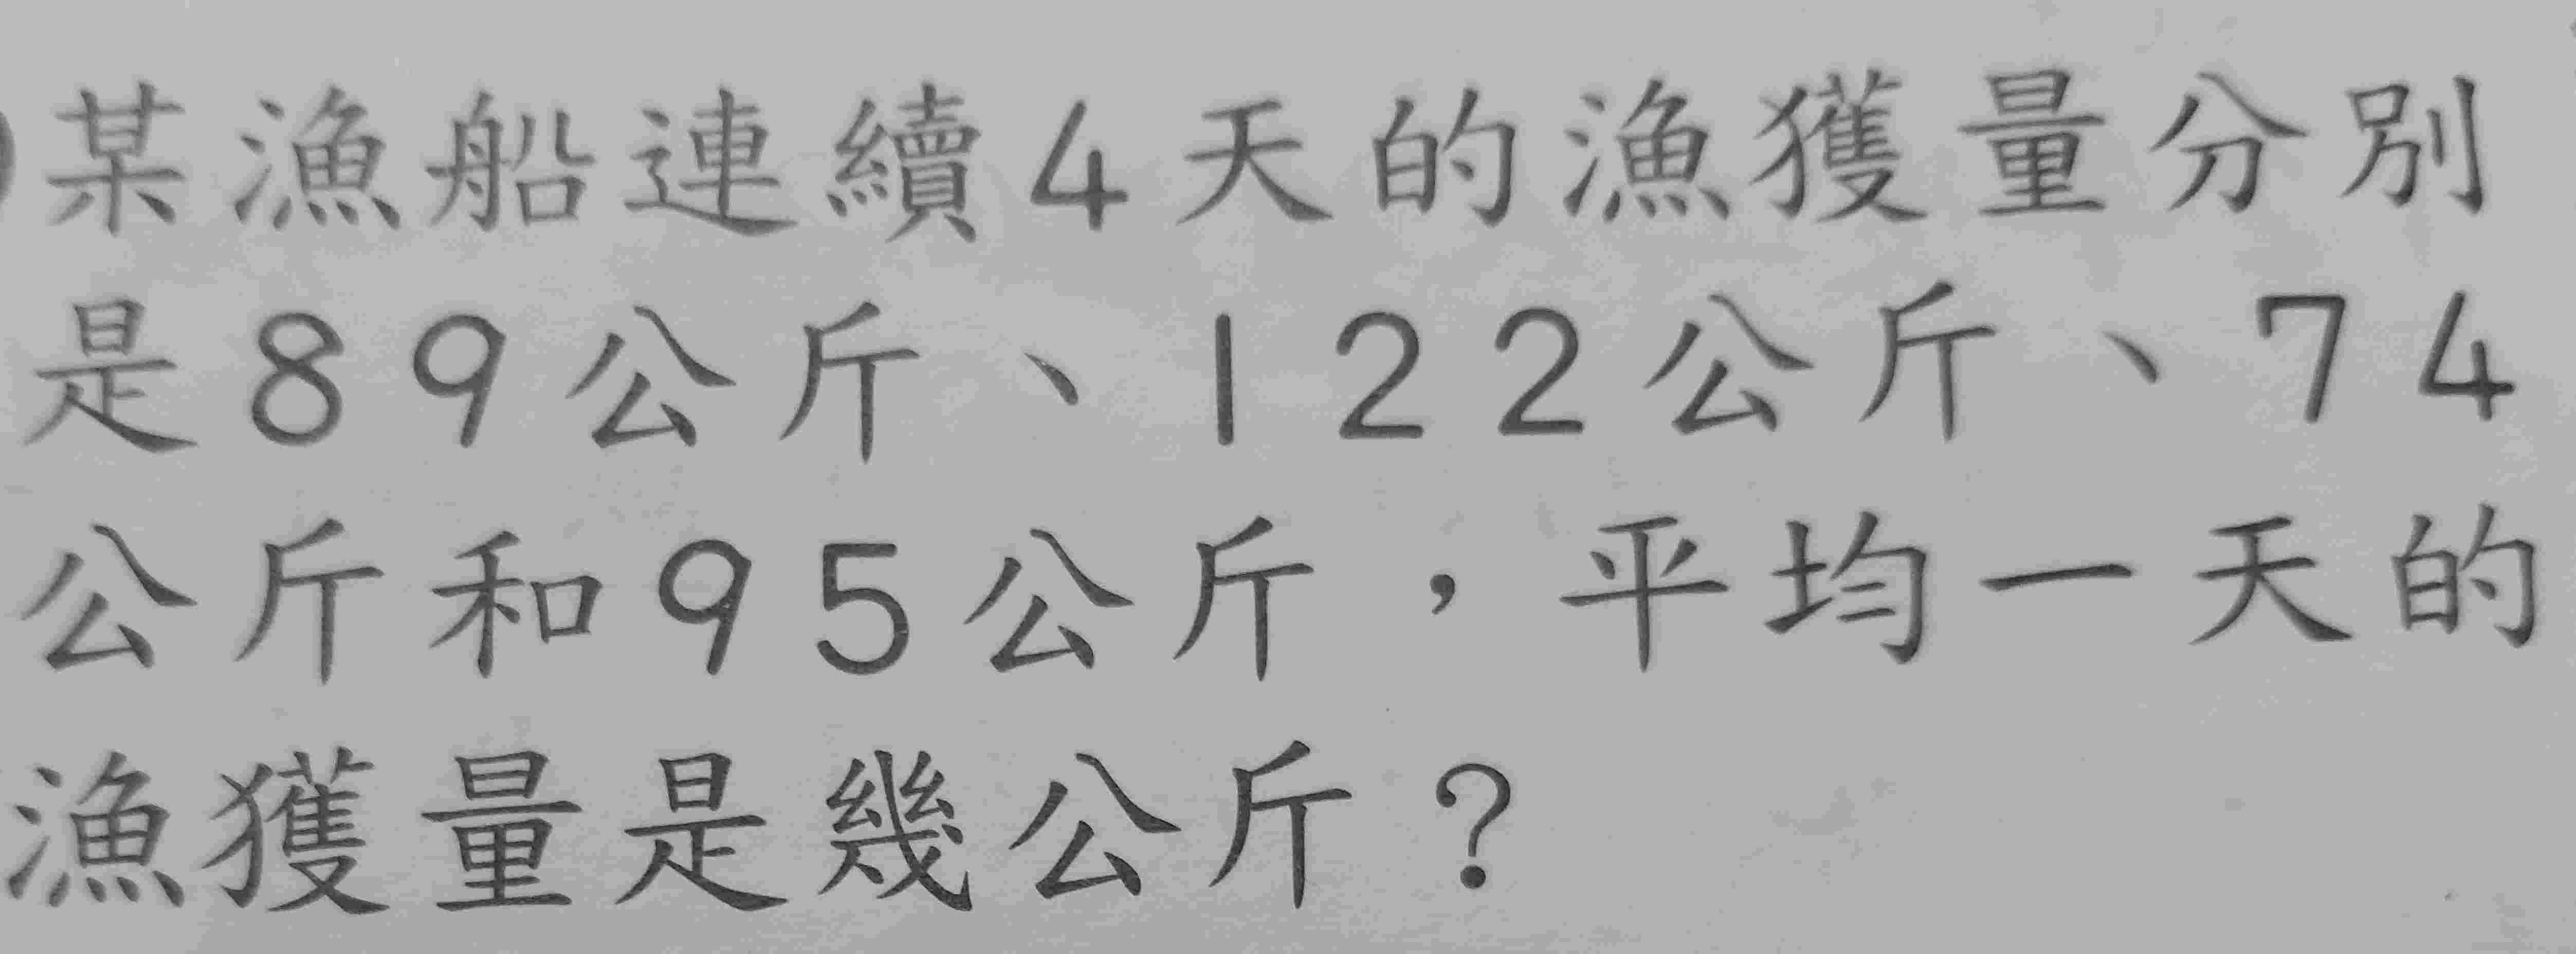 某漁船連續4天的漁獲量分別
是89公斤、122公斤、74
公斤和95公斤，平均一天的
漁獲量是幾公斤？